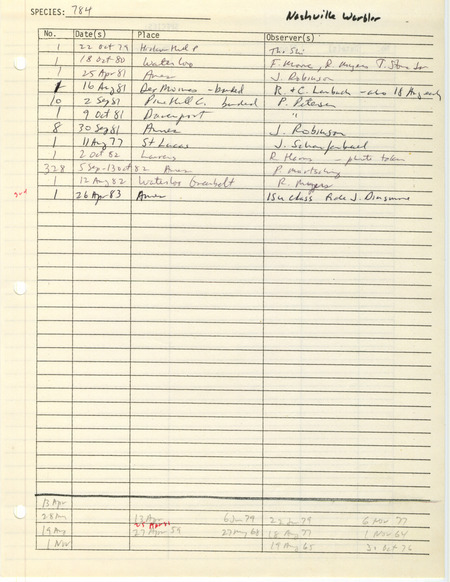 SPECIES: 784 Nashville Warbler
No. Date(s) Place Observer(s)
1 22 Oct 79
1 18 Oct 80 Waterloo F. Moore, R. Myers T. Stone
1 25 Apr 81 Ames J. Robinson
1 16 Aug 81 Des Moines - banded R. + C. - also 18 Aug
10 2 Sep 81 Pine Hill C. banded P. Petersen
1 9 Oct 81 Davenport "
8 30 Sep 81 Ames J. Robinson
1 11 Aug 77 St Lucas J. Schaufenbuel
1 2 Oct 82 - photo taken
328 5 Sep-13 Oct 82 Ames P. Martsching
1 12 Aug 82 Waterloo Greenbelt R. Myers
2nd 1 26 Apr 83 Ames ISU class J. Dinsmore
13 Apr
28 13 Apr 6 Jun 79 22 Jun 79 6 Nov 77
25 Apr 81
19 Aug 27 Apr 59 18 Aug 77 1 Nov 64
1 Nov 19 Aug 65 31 Oct 76